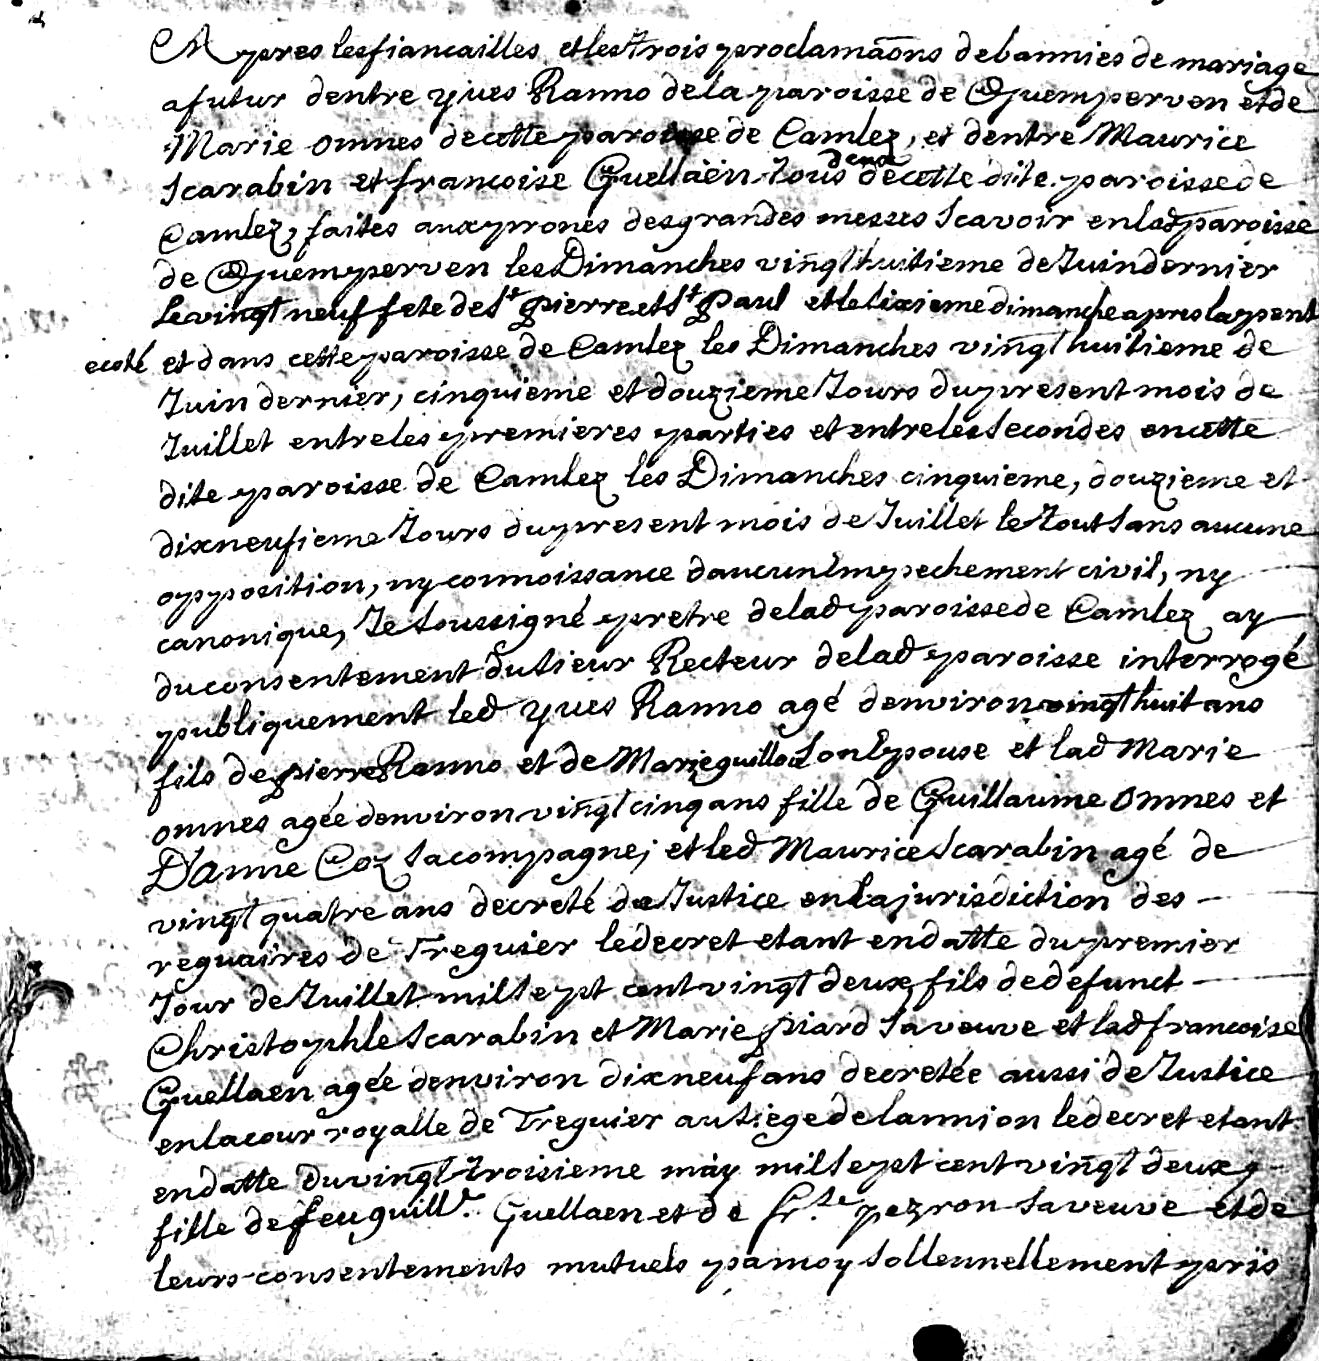 Apres les fiancailles et les trois proclamaõns de bannies de mariage
a futur dentre yves Ranno de la paroisse de Quemperven et de
Marie omnes de cette paroisse de Camlez, et dentre Maurice
Scarabin et francoise Guellaën tous deux de cette dite paroisse de
Camlez, faites aux prones des grandes messes Scavoir en lad paroisse
de Quemperven les Dimanches vingt huitieme de Juin dernier
le vingt neuf fete de St pierre et St Paul et le sixieme dimanche apres la pent
ecoté et dans cette paroisse de Camlez les Dimanches vingt huitieme de
Juin dernier, cinquieme et douzieme Jours du present mois de
Juillet entre les premieres parties et entre les Secondes en cette
dite paroisse de Camlez les Dimanches cinquieme, douzieme et
dixneufieme Jours du present mois de Juillet le tout Sans aucune
opposition, ny connoissance daucun Empechement civil, ny
canonique, Je Soussigné pretre de lad paroisse de Camlez ay
du consentement du Sieur Recteur de lad paroisse interrogé
publiquement led yves Ranno agé denviron vingt huit ans
fils de pierre Ranno et de Marie guillou Son Epouse et lad Marie
omnes agée denviron vingt cinq ans fille de Guillaume omnes et
D'anne Coz Sa compagne; et led Maurice Scarabin agé de
vingt quatre ans decreté de Justice en la jurisdiction des
reguaires de Treguier le decret etant en datte du premier
Jour de Juillet mil Sept cent vingt deux, fils de defunct
Christophle Scarabin et Marie piard Sa veuve et lad francoise
Guellaen agée denviron dixneuf ans decretée aussi de Justice
en la cour royalle de Treguier au Siege de lannion le decret etant
en datte du vingt troisieme may mil Sept cent vingt deux,
fille de feu guill.e Guellaen et de fr.se pezron Sa veuve et de
leurs consentements mutuels par moy Sollennellement pris